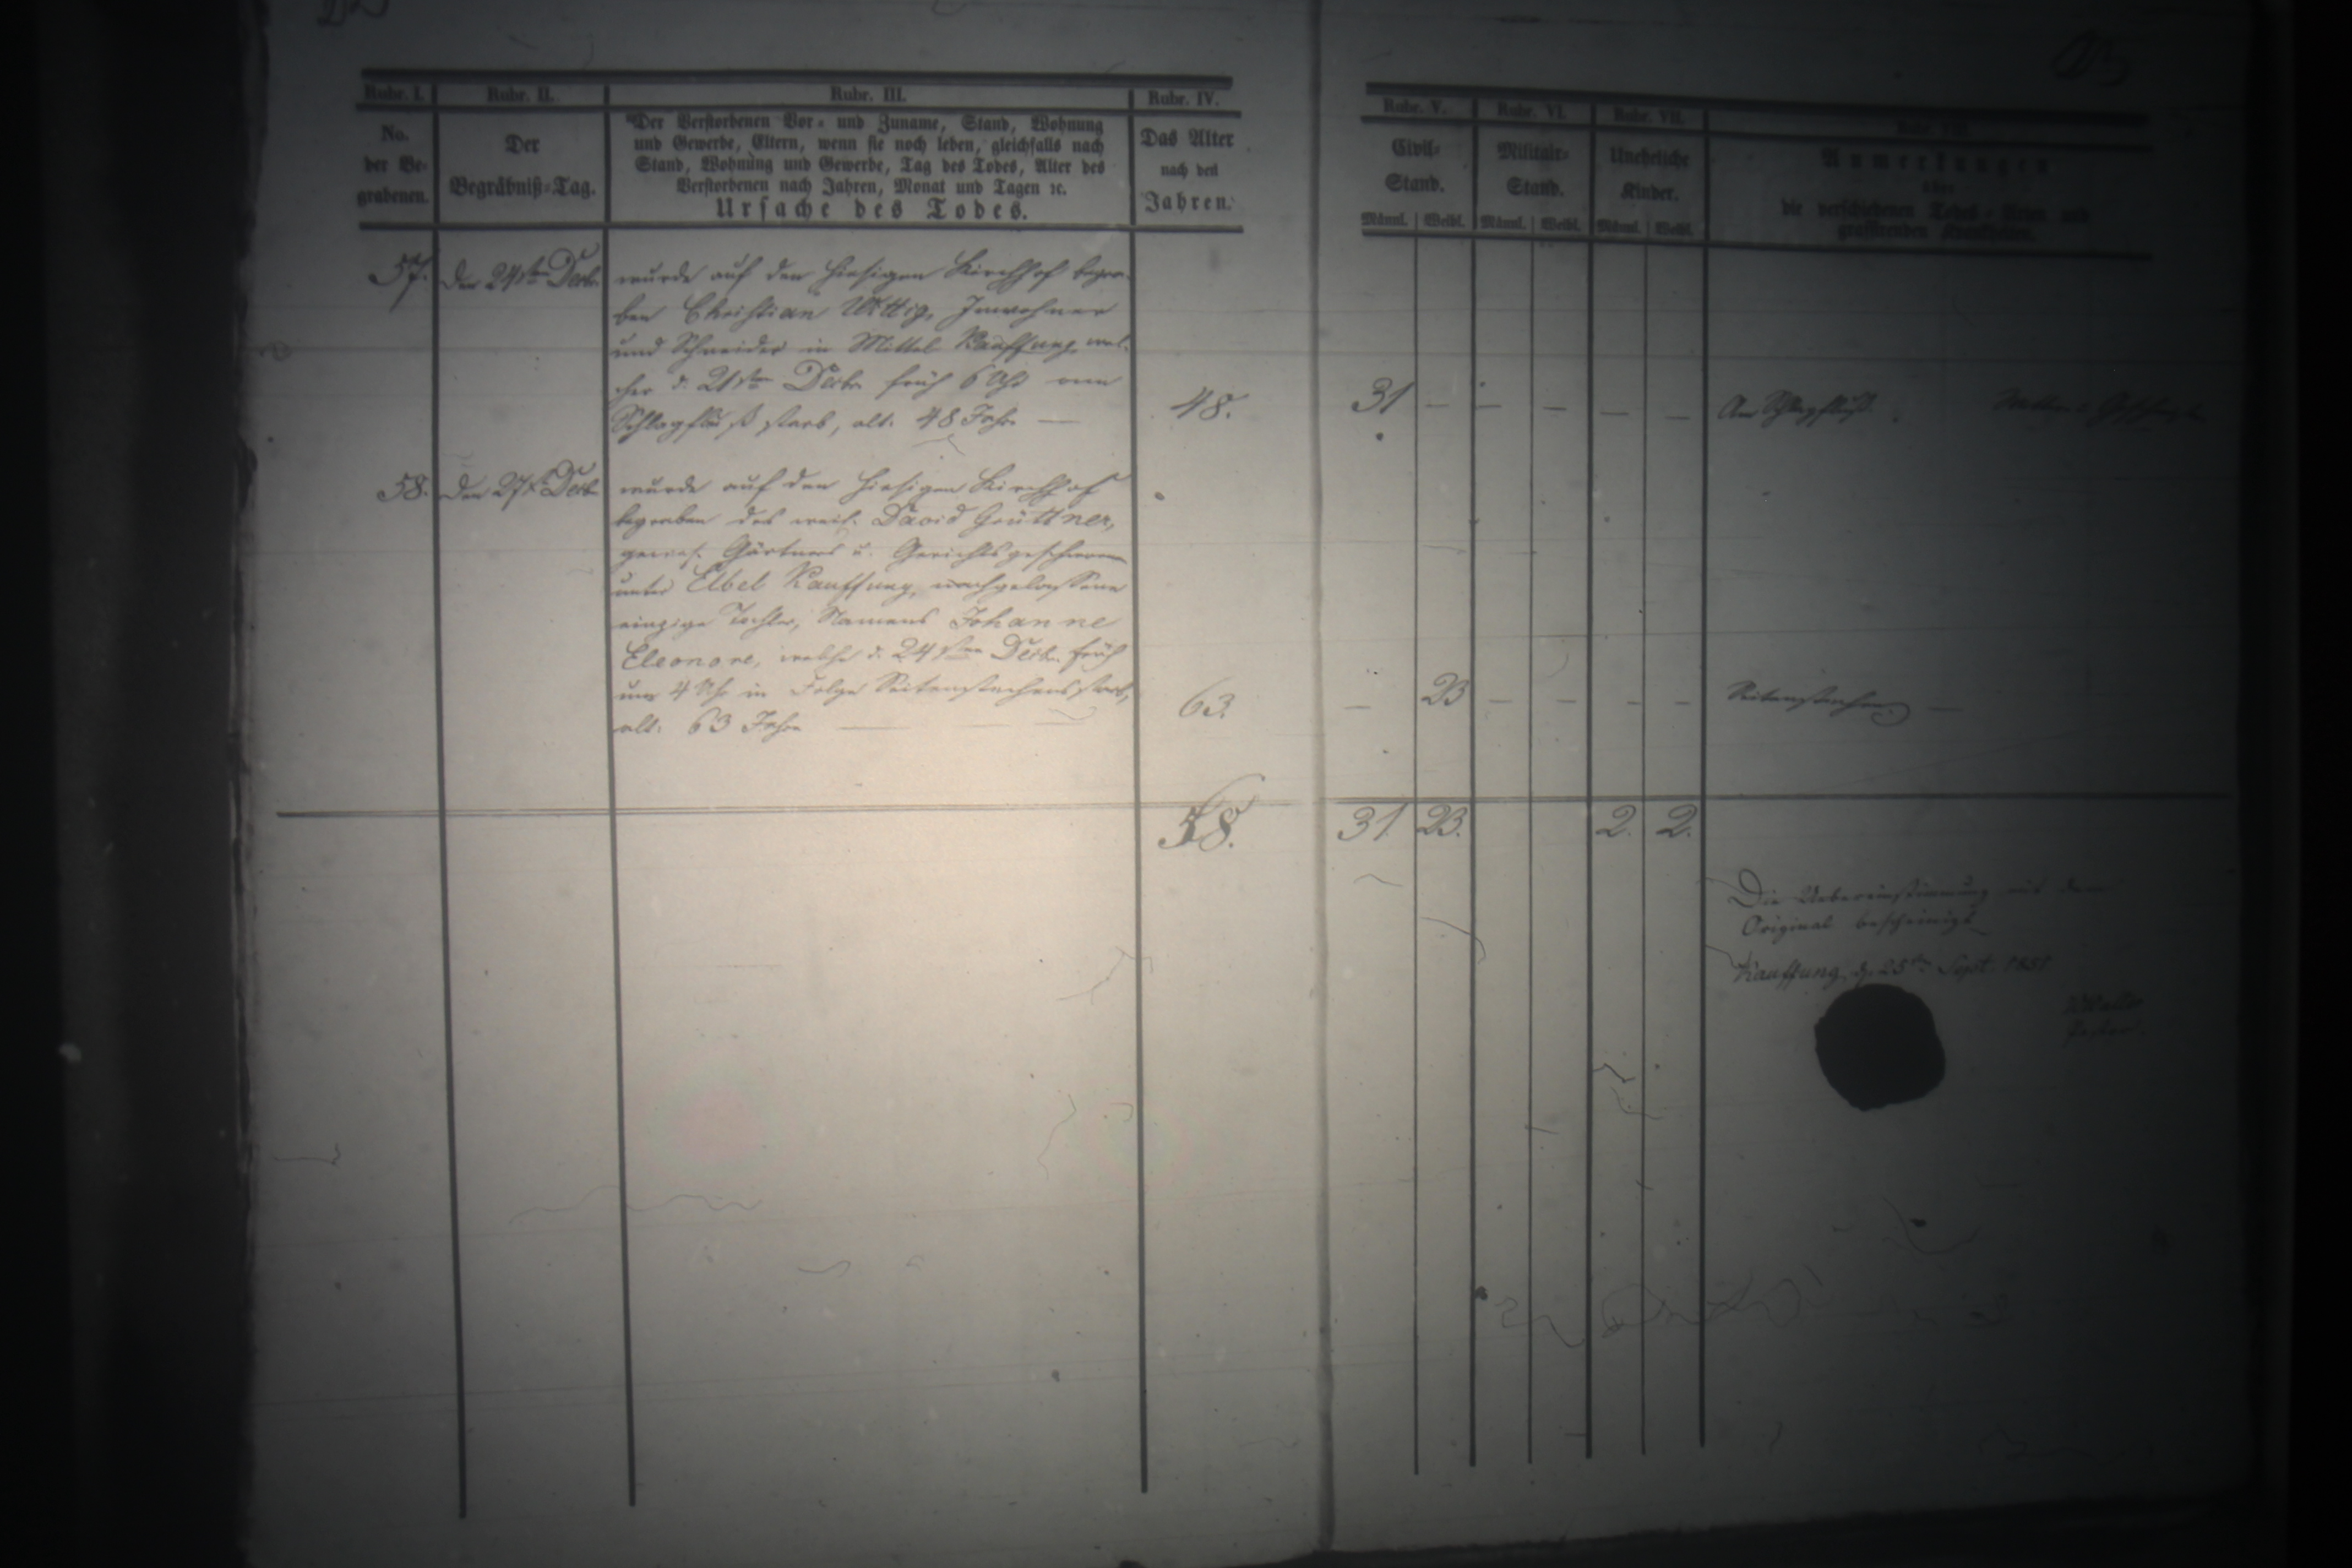 Rubr. I. Rubr. II. Rubr. III. Rubr. IV.
No.
der Be-
grabenen.
Der
Begräbniß-Tag.
Der Verstorbenen Vor- und Zuname, Stand, Wohnung
und Gewerbe, Eltern, wenn sie noch leben, gleichfalls nach
Stand, Wohnung und Gewerbe, Tag des Todes, Alter des
Verstorbenen nach Jahren, Monat und Tagen ꝛc.
Ursache des Todes.
Das Alter
nach den
Jahren.
57. Den 24sten Decbr.
wurde auf den hiesigen Kirchhof begra-
ben Christian Wittig, Inwohner
und Schneider in Mittel Kauffung, wel-
cher d. 21sten Decbr. früh 6 Uhr am
Schlagfluß starb, alt. 48 Jahr —
48.
58. Den 27st. Decbr.
wurde auf den hiesigen Kirchhof
begraben des weil. David Grüttner,
gewes. Gärtners u. Gerichtsgeschworenen
unter Elbel Kauffung, nachgelassene
einzige Tochter, Namens Johanne
Eleonore, welche d. 24sten Decbr. früh
um 4 Uhr in Folge Seitenstechens starb,
alt: 63 Jahre
63.
58.
Rubr. V. Rubr. VI. Rubr. VII. Rubr. VIII.
Civil-
Stand.
Militair-
Stand.
Uneheliche
Kinder.
Anmerkungen
über
die verschiedenen Todes-Arten und
grassirenden Krankheiten.
Männl. Weibl. Männl. Weibl. Männl. Weibl.
31 — — — — — Am Schlagfluß.
— 23 — — — — Seitenstechen —
31. 23. 2. 2.
Die Uebereinstimmung mit dem
Original bescheinigt
Kauffung, d. 25ten Sept. 1851